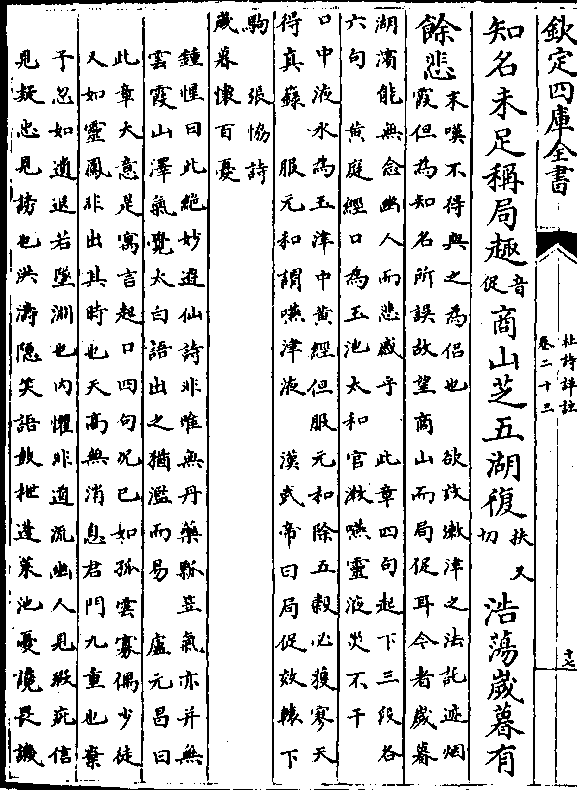 欽定四庫全書
杜詩詳註
卷二十三
十七
知名未足稱局趣音促商山芝五湖復扶又切浩蕩歲暮有
餘悲
末嘆不得與之為侶也 欲效漱津之法託迹烟
霞但為知名所誤故望商山而局促耳今者歲暮
湖濱能無念幽人而悲感乎 此章四句起下三段各
六句 黄庭經口為玉池太和官漱嚥靈液災不干
口中液水為玉津中黄經但服元和除五穀必獲寥天
得真籙 服元和謂嚥津液 漢武帝曰局促效轅下
駒 張恊詩
歲暮懷百憂
鍾惺曰此絶妙遊仙詩非唯無丹藥瓢笠氣亦并無
雲霞山澤氣覺太白語出之猶濫而易 盧元昌曰
此章大意是寓言起口四句况已如孤雲寡偶少徒
又如靈鳳非出其時也天高無消息君門九重也棄
予忽如遺退若墜淵也内懼非道流幽人見瑕疵信
見疑忠見謗也洪濤隱笑語鼓枻蓬萊池憂讒畏譏